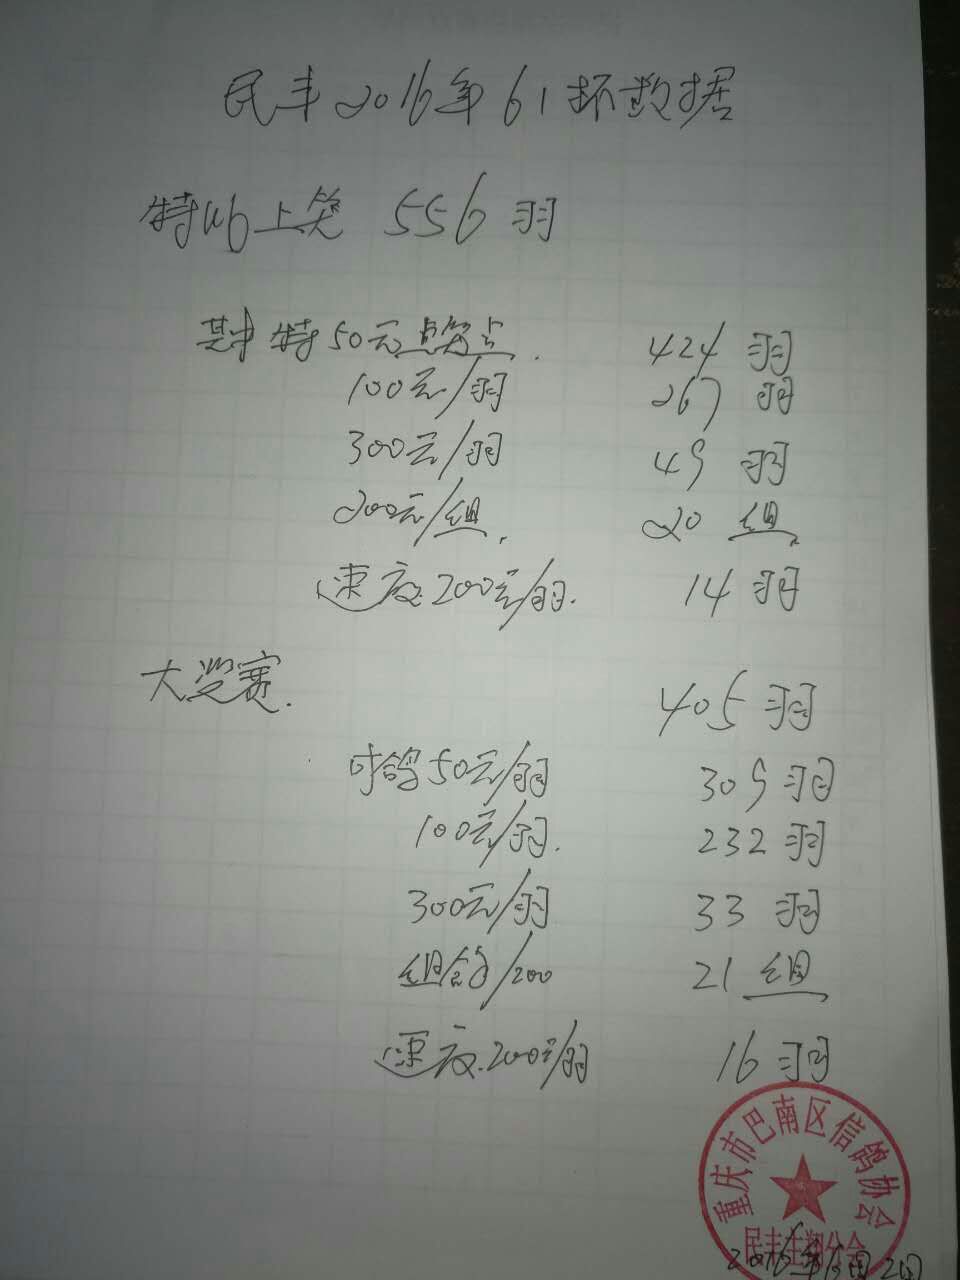 民丰2016年61环数据
特比上笼 556羽
其中特50元 424羽
100元/羽 267羽
300元/羽 49羽
200元/组. 20组
速度.200元/羽. 14羽
大奖赛. 405羽
鸽50元/羽 309羽
100元/羽. 232羽
300元/羽 33羽
组/200 21组
速度.200元/羽 16羽
重庆市巴南区信鸽协会
民丰 翔分会
2016年6月2日